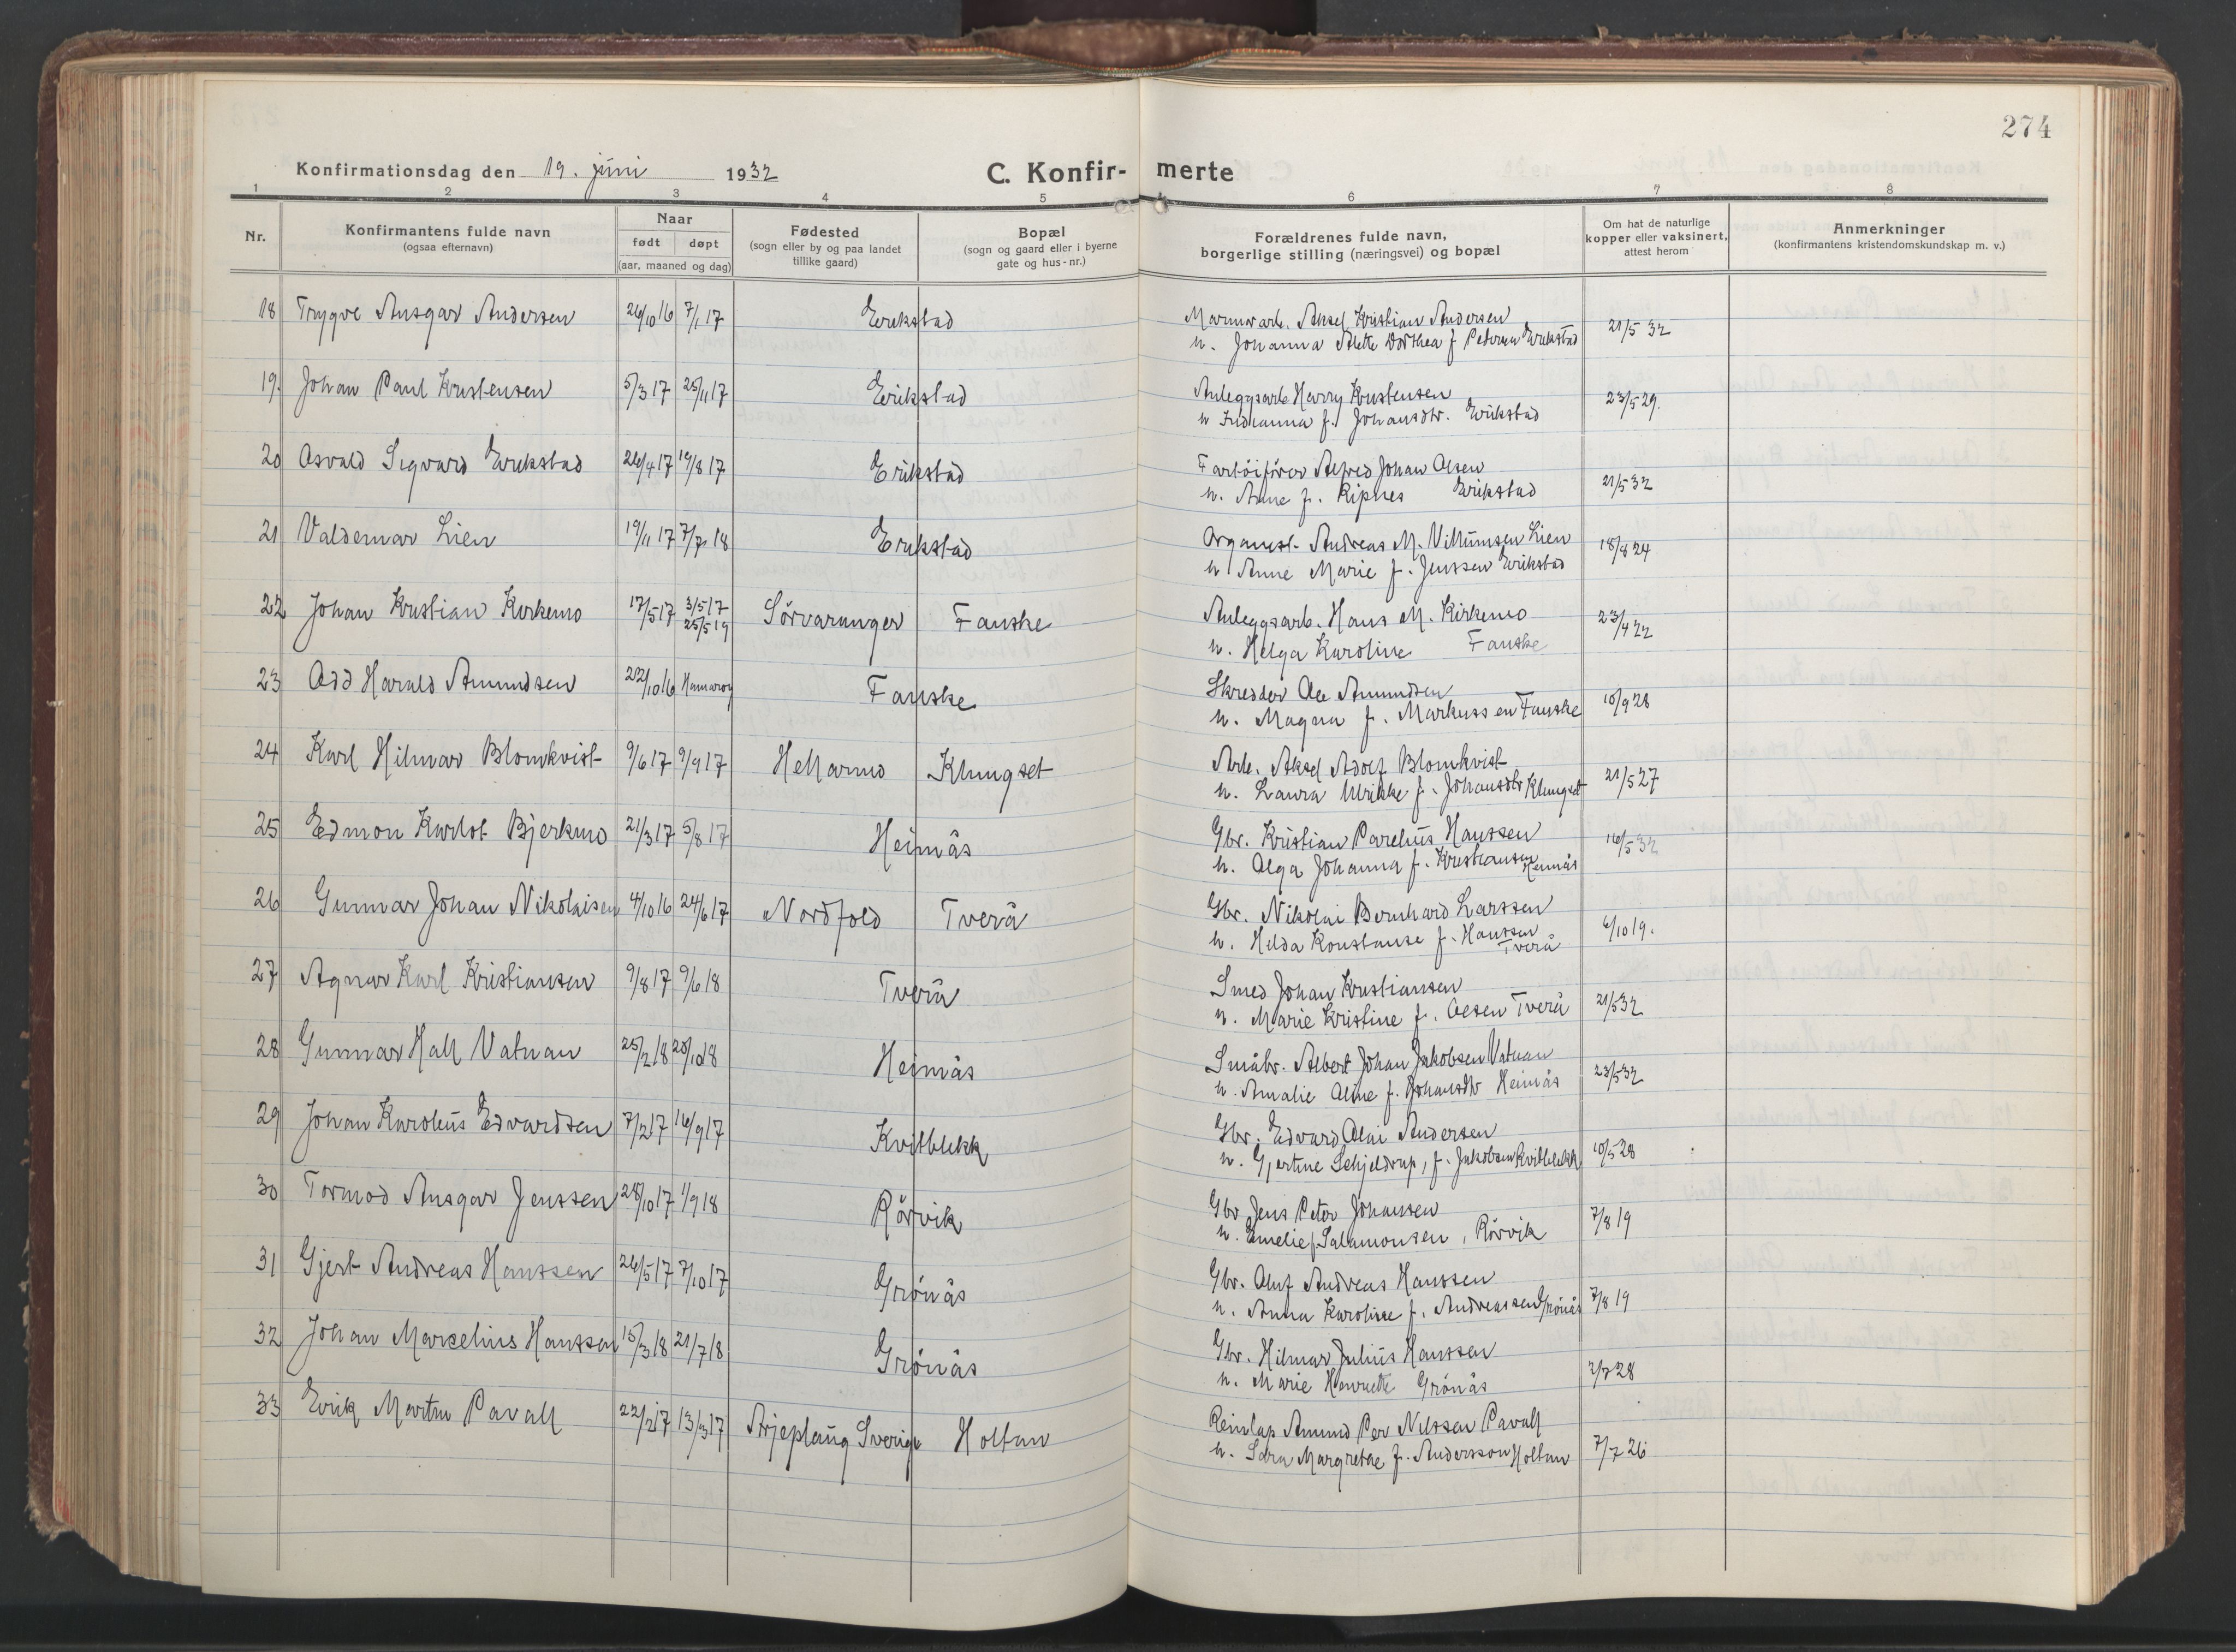 274
Konfirmationsdag den 19. juni 1932 C. Konfir- merte
1 2 3 4 5 6 7 8
Nr. Konfirmantens fulde navn (ogsaa efternavn) Naar født døpt (aar, maaned og dag) Fødested (sogn eller by og paa landet tillike gaard) Bopæl (sogn og gaard eller i byerne gate og hus-nr.) Forældrenes fulde navn, borgerlige stilling (næringsvei) og bopæl Om hat de naturlige kopper eller vaksinert, attest herom Anmerkninger (konfirmantens kristendomskundskap m. v.)
18 Trygve Ansgar Andersen 26/10 16 7/1 17 Erikstad Marmorarb. Aksel Kristian Andersen 21/5 32
h. Johanna Alette Dorthea f Petersen Erikstad
19. Johan Paul Kristensen 5/3 17 25/11 17 Erikstad Anleggsarb Harry Kristensen 23/5 29.
h f. Johansdtr. Erikstad
20 Asvald Sigvard Erikstad 26/4 17 19/8 17 Erikstad Fartöiförer Alfred Johan Olsen 21/5 32
h. Anne f. Ripnes Erikstad
21 Valdemar Lien 19/11 17 7/7 18 Erikstad Organist. Andreas M. Villumsen Lien 18/8 24
h Anne Marie f. Jenssen Erikstad
22 Johan Kristian Kirkemo 17/5 17 3/5 17 25/5 19 Sörvaranger Fauske Anleggsarb. Hans M. Kirkemo 23/4 22
h. Helga Karoline Fauske
23 Odd Harald Amundsen 22/10 16 Hamaröy Fauske Skredder Ole Amundsen 10/9 28
h. Magna f. Markussen Fauske
24 Karl Hilmar Blomkvist 9/6 17 9/9 17 Hellarmo Klungset Arb. Aksel Adolf Blomkvist 21/5 27
h. Laura Ulrikke f. Johansdtr Klungset
25 Edmon Karlot Bjerkmo 21/3 17 5/8 17 Heimås Gbr. Kristian Parelius Hanssen 16/5 32
h. Olga Johanna f. Kristiansen Heimås
26 Gunnar Johan Nikolaisen 4/10 16 24/6 17 Nordfold Tverå Gbr. Nikolai Bernhard Larssen 6/10 19.
h. Hilda Konstanse f. Hanssen Tverå
27 Agnar Karl Kristiansen 9/8 17 9/6 18 Tverå Smed Johan Kristiansen 21/5 32
h. Marie Kristine f. Olsen Tverå
28 Gunnar Hall Vatnan 25/2 18 20/10 18 Heimås Småbr. Albert Johan Jakobsen Vatnan 23/5 32
h. Amalie Oline f. Johansdtr Heimås
29 Johan Karolius Edvardsen 7/2 17 16/9 17 Kvitblikk Gbr. Edvard Olai Andersen 10/5 28
h. Gjertine Schjeldrup, f. Jakobsen Kvitblikk
30 Tormod Ansgar Jenssen 28/10 17 1/9 18 Rörvik Gbr Jens Peter Johansen 7/8 19
h. Emelie f Salamonsen, Rörvik
31 Gjert Andreas Hanssen 26/5 17 7/10 17 Grönås Gbr. Oluf Andreas Hanssen 7/8 19
h. Anna Karoline f. Andreassen Grönås
32 Johan Marselius Hanssen 15/3 18 21/7 18 Grönås Gbr. Hilmar Julius Hanssen 2/7 28
h. Marie Henriette Grönås
33 Erik Martin Pavall 22/2 17 13/3 17 Arjeplaug Sverige Holtan Reinlap Amund Per Nilssen Pavall 7/7 26
h. Sara Margrethe f. Andersson Holtan